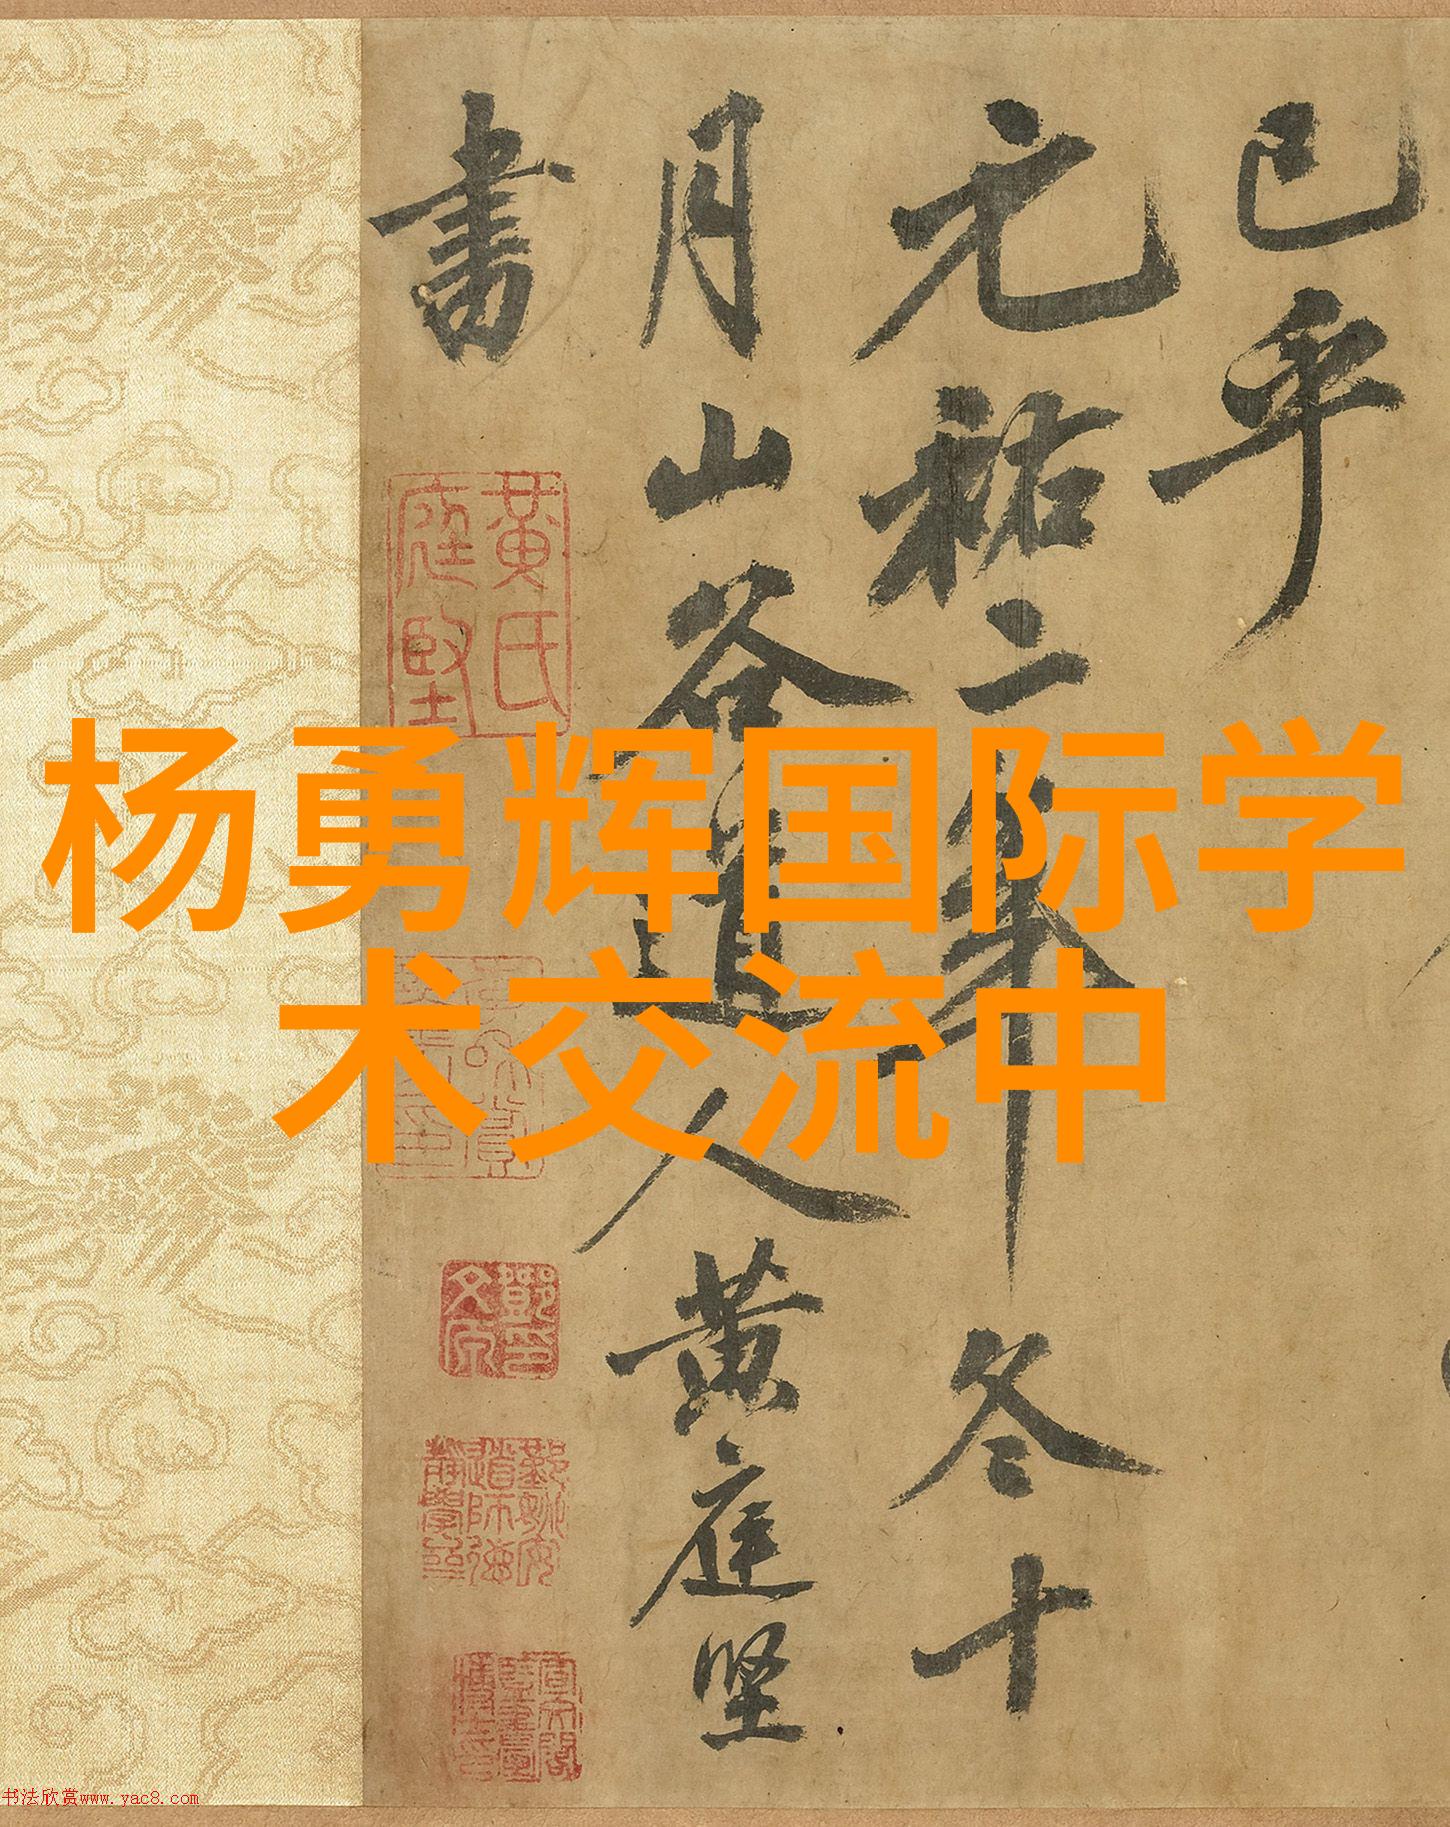 已乎
元祐二年冬十
月山谷道人黄庭坚
書
黄氏庭堅
杨勇辉国际学
术交流中
书法欣赏www.yac8.com